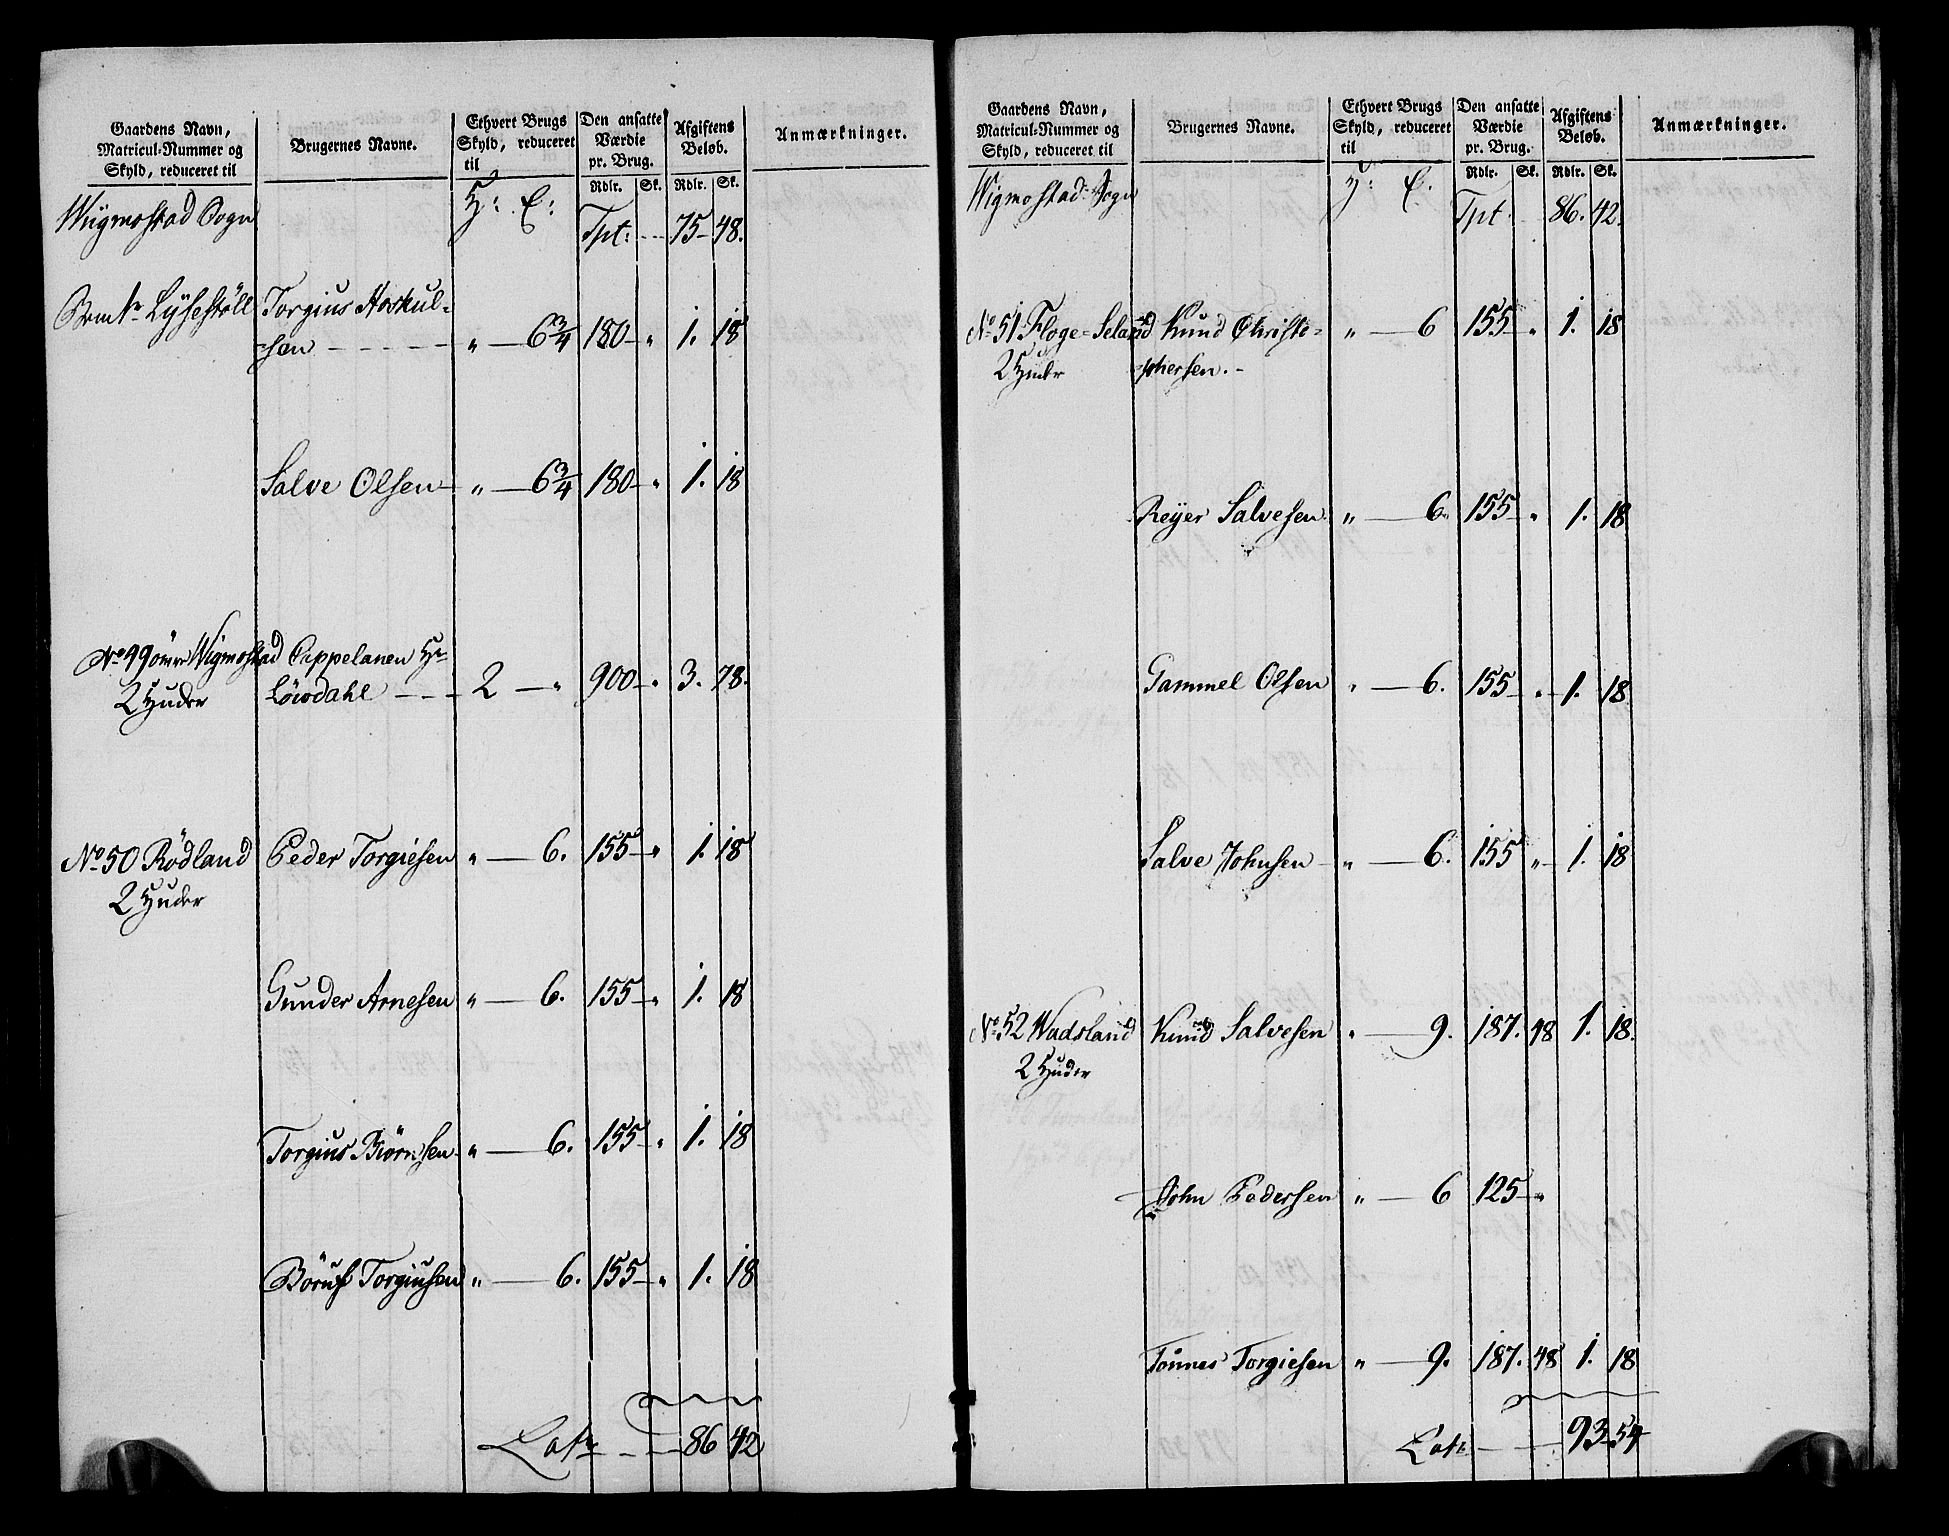 Gaardens Navn, Matricul-Nummer og Skyld, reduceret til | Brugernes Navne. | Ethvert Brugs Skyld, reduceret til | Den ansatte Værdie pr. Brug. | Afgiftens Beløb. | Anmærkninger.
Rdlr. | Sk. | Rdlr. | Sk.
Wiigmostad Sogn | H: E: | Tpt: 75 48.
Lysestöll | Torgius Aookul=
sen | " 6 3/4 | 180 " | 1. 18
Salve Olsen | " 6 3/4 | 180 " | 1. 18
No 49 Wigmostad | Cappelanen Hr
2 Huder | Löwdahl | 2 " | 900 " | 3. 78.
No 50 Rödland | Peder Torgiesen | " 6. | 155 " | 1. 18
2 Huder
Gunder Arnesen | " 6. | 155 " | 1. 18
Torgius Biörnsen | " 6. | 155 " | 1. 18
Torgiusen | " 6. | 155 " | 1. 18
Lat: 86 42
Gaardens Navn, Matricul-Nummer og Skyld, reduceret til | Brugernes Navne. | Ethvert Brugs Skyld, reduceret til | Den ansatte Værdie pr. Brug. | Afgiftens Beløb. | Anmærkninger.
Rdlr. | Sk. | Rdlr. | Sk.
Wigmostad: Sogn | H: E. | Tpt. 86. 42.
No 51 Floge=Seland | Knud Christo=
2 Huder | phersen. | " 6 | 155 " | 1. 18
Reÿer Salvesen | " 6. | 155 " | 1. 18
Gammel Olsen | " 6. | 155 " | 1. 18
Salve Johnsen | " 6. | 155 " | 1. 18
No 52 Wadsland | Knud Salvesen | " 9. | 187. 48 | 1. 18.
2 Huder
John Pedersen | " 6 | 125 "
Tönnes Torgiesen | " 9. | 187. 48 | 1. 18
Lat: 93 54